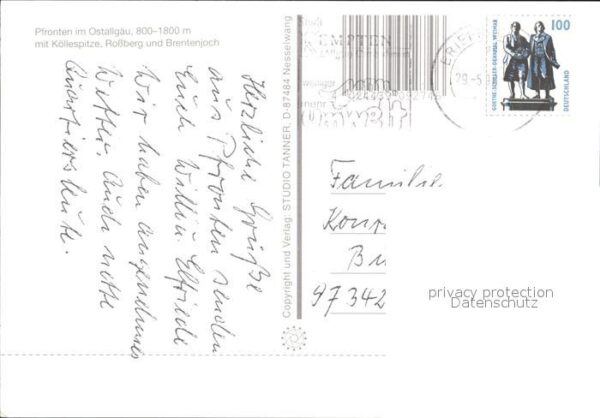 Pfronten im Ostallgäu, 800–1800 m
mit Köllespitze, Roßberg und Brentenjoch
Herzliche Grüße
aus Pfronten senden
Euch Willi u. Elfriede
Wir haben angenehmes
Wetter. Auch nette
Quartiersleute.
Copyright und Verlag: STUDIO TANNER, D-87484 Nesselwang
KEMPTEN
weniger
mehr
Umwelt
100
GOETHE-SCHILLER-DENKMAL WEIMAR
DEUTSCHLAND
Familie
97342
privacy protection
Datenschutz